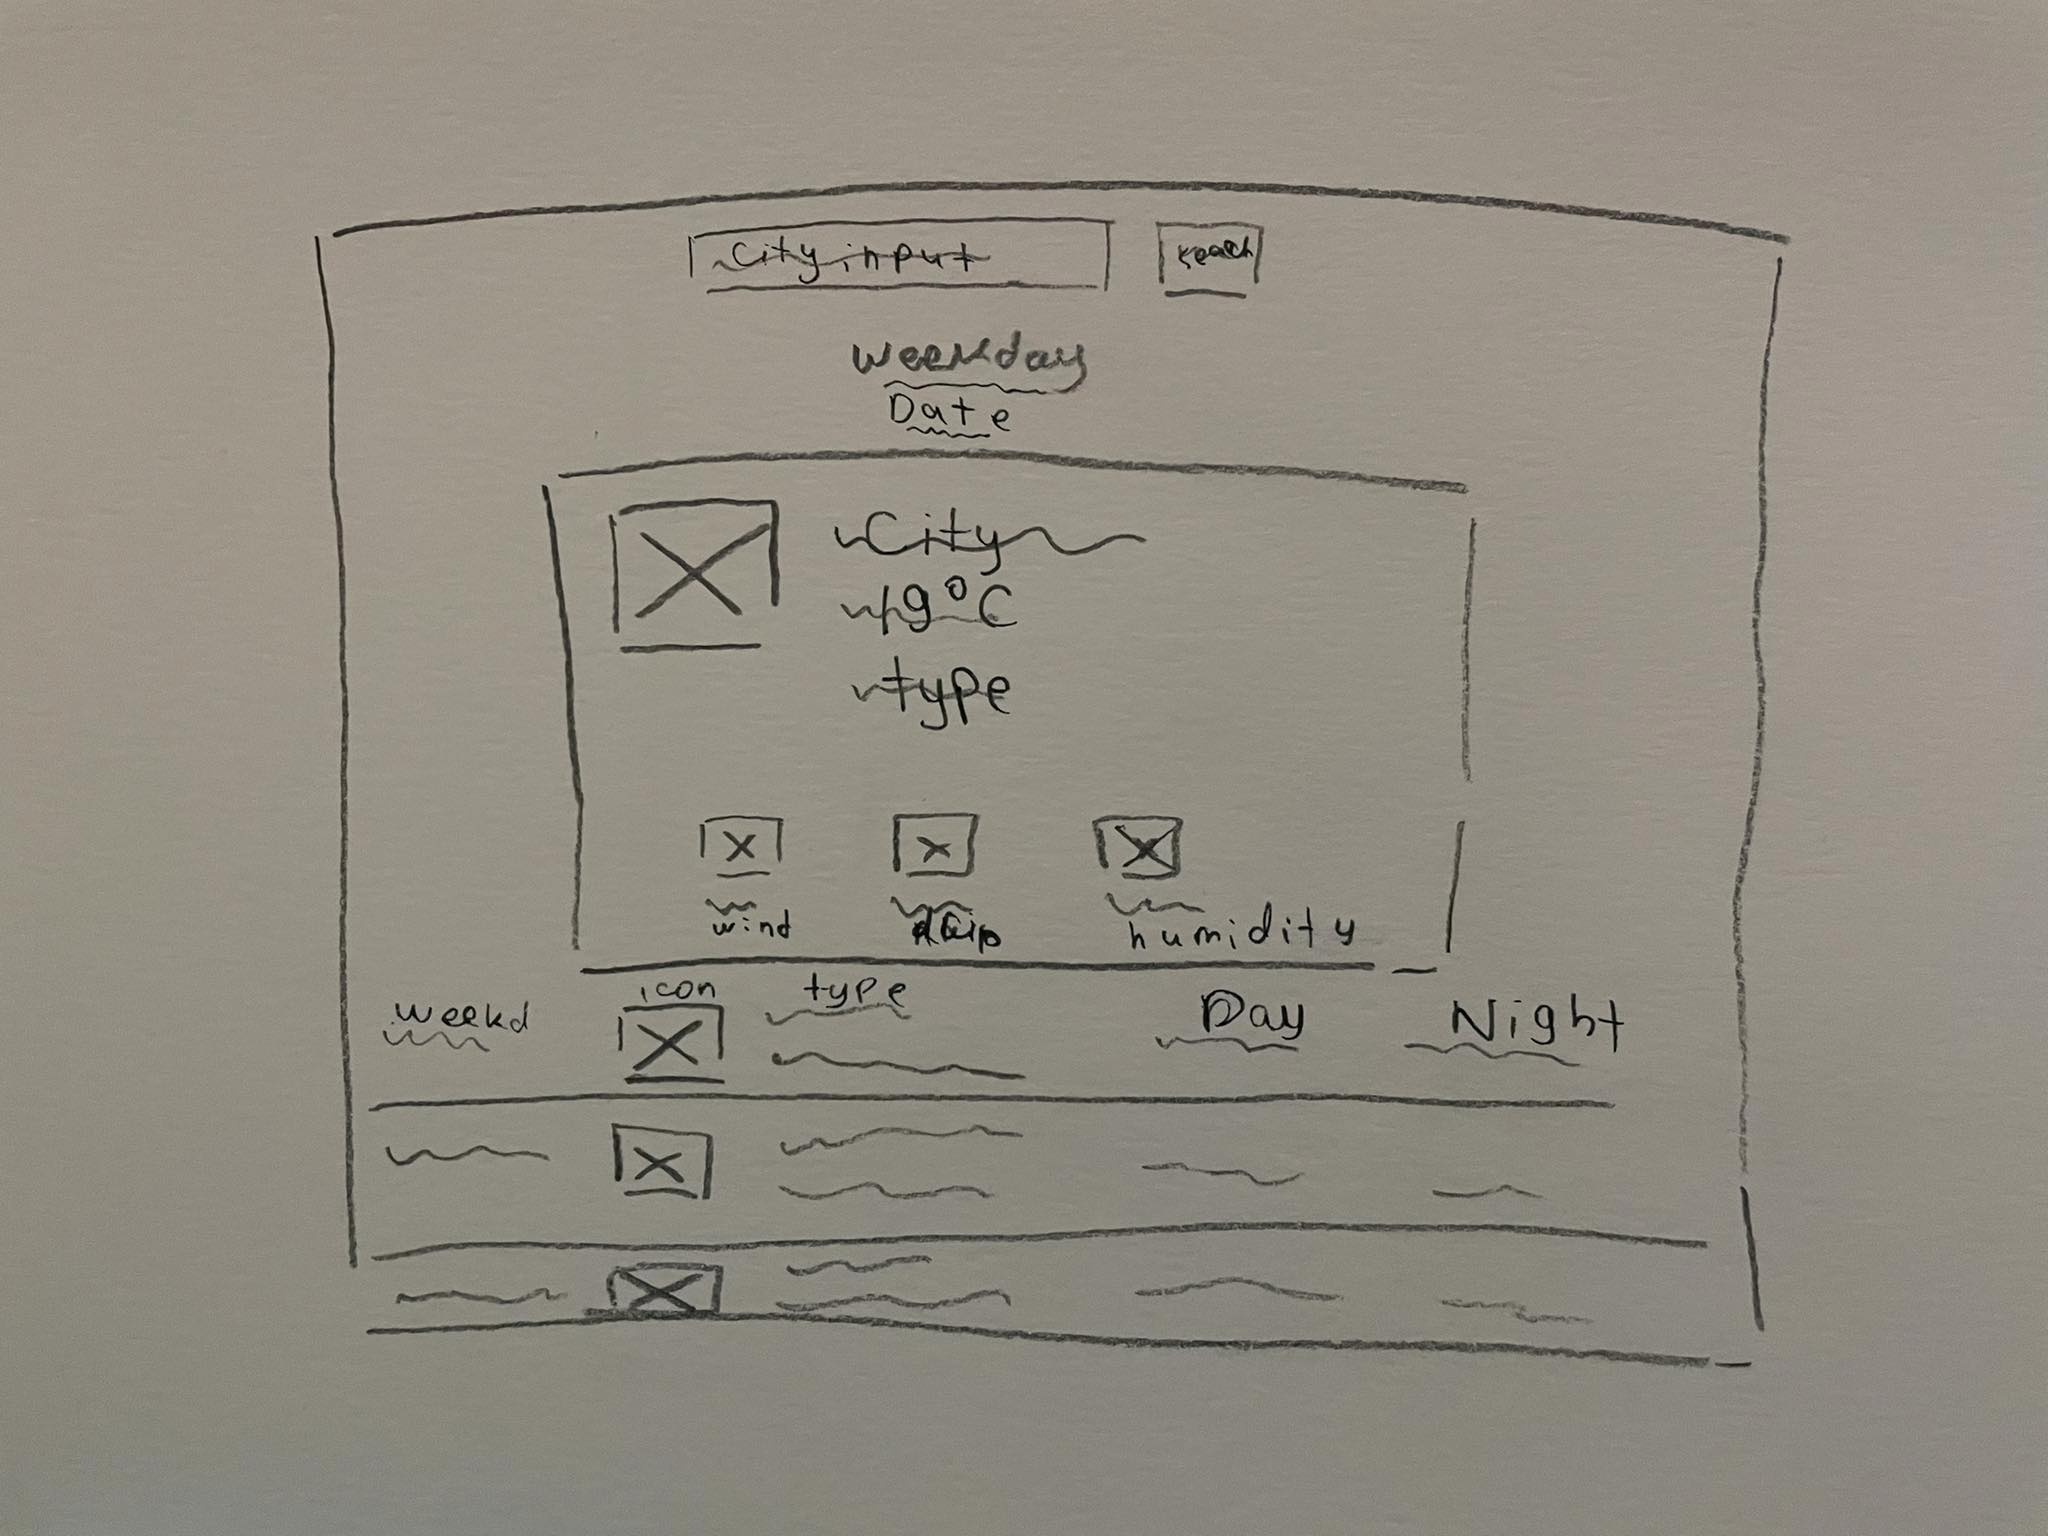 City input
Search
weekday
Date
City
19°C
type
wind
humidity
weekd
icon
type
Day
Night